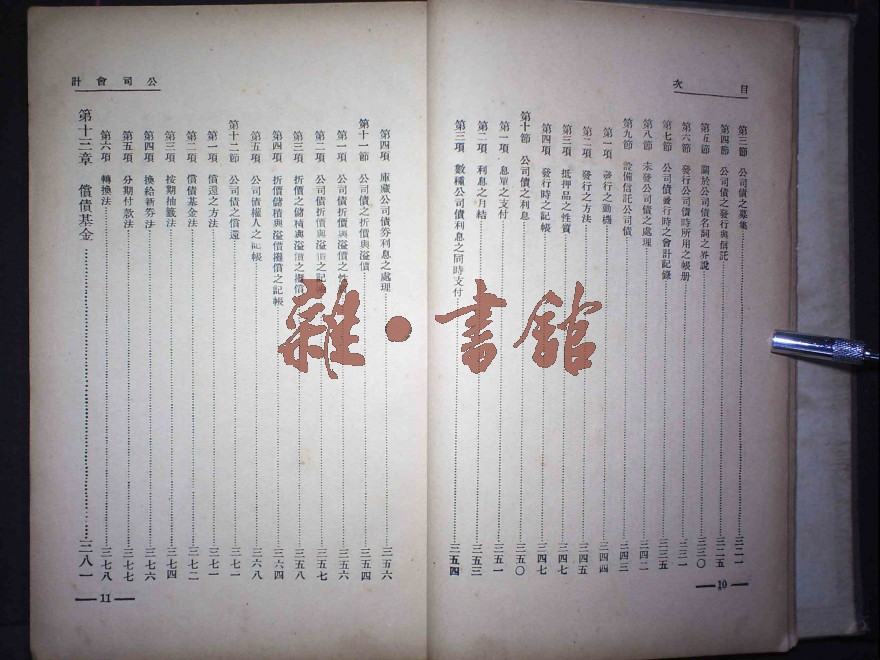 目次
第三節 公司債之募集 三二一
第四節 公司債之發行與信託 三二五
第五節 關於公司債名詞之界說 三三〇
第六節 發行公司債時所用之帳册 三三一
第七節 公司債發行時之會計記錄 三三五
第八節 未發公司債之處理 三四二
第九節 設備信託公司債 三四三
第一項 發行之動機 三四四
第二項 發行之方法 三四五
第三項 抵押品之性質 三四七
第四項 發行時之記帳 三四七
第十節 公司債之利息 三五〇
第一項 息單之支付 三五一
第二項 利息之月結 三五三
第三項 數種公司債利息之同時支付 三五四
10
公司會計
第四項 庫藏公司債券利息之處理 三五六
第十一節 公司債之折價與溢價 三五四
第一項 公司債折價與溢價之性 三五六
第二項 公司債折價與溢價之記 三五七
第三項 折價之儲積與溢價之攤償 三五八
第四項 折價儲積與溢價攤償之記帳 三六四
第五項 公司債權人之記帳 三六八
第十二節 公司債之償還 三七一
第一項 償還之方法 三七一
第二項 償債基金法 三七二
第三項 按期抽籤法 三七四
第四項 換給新券法 三七六
第五項 分期付款法 三七七
第六項 轉換法 三七八
第十三章 償債基金 三八一
11
雜·書館